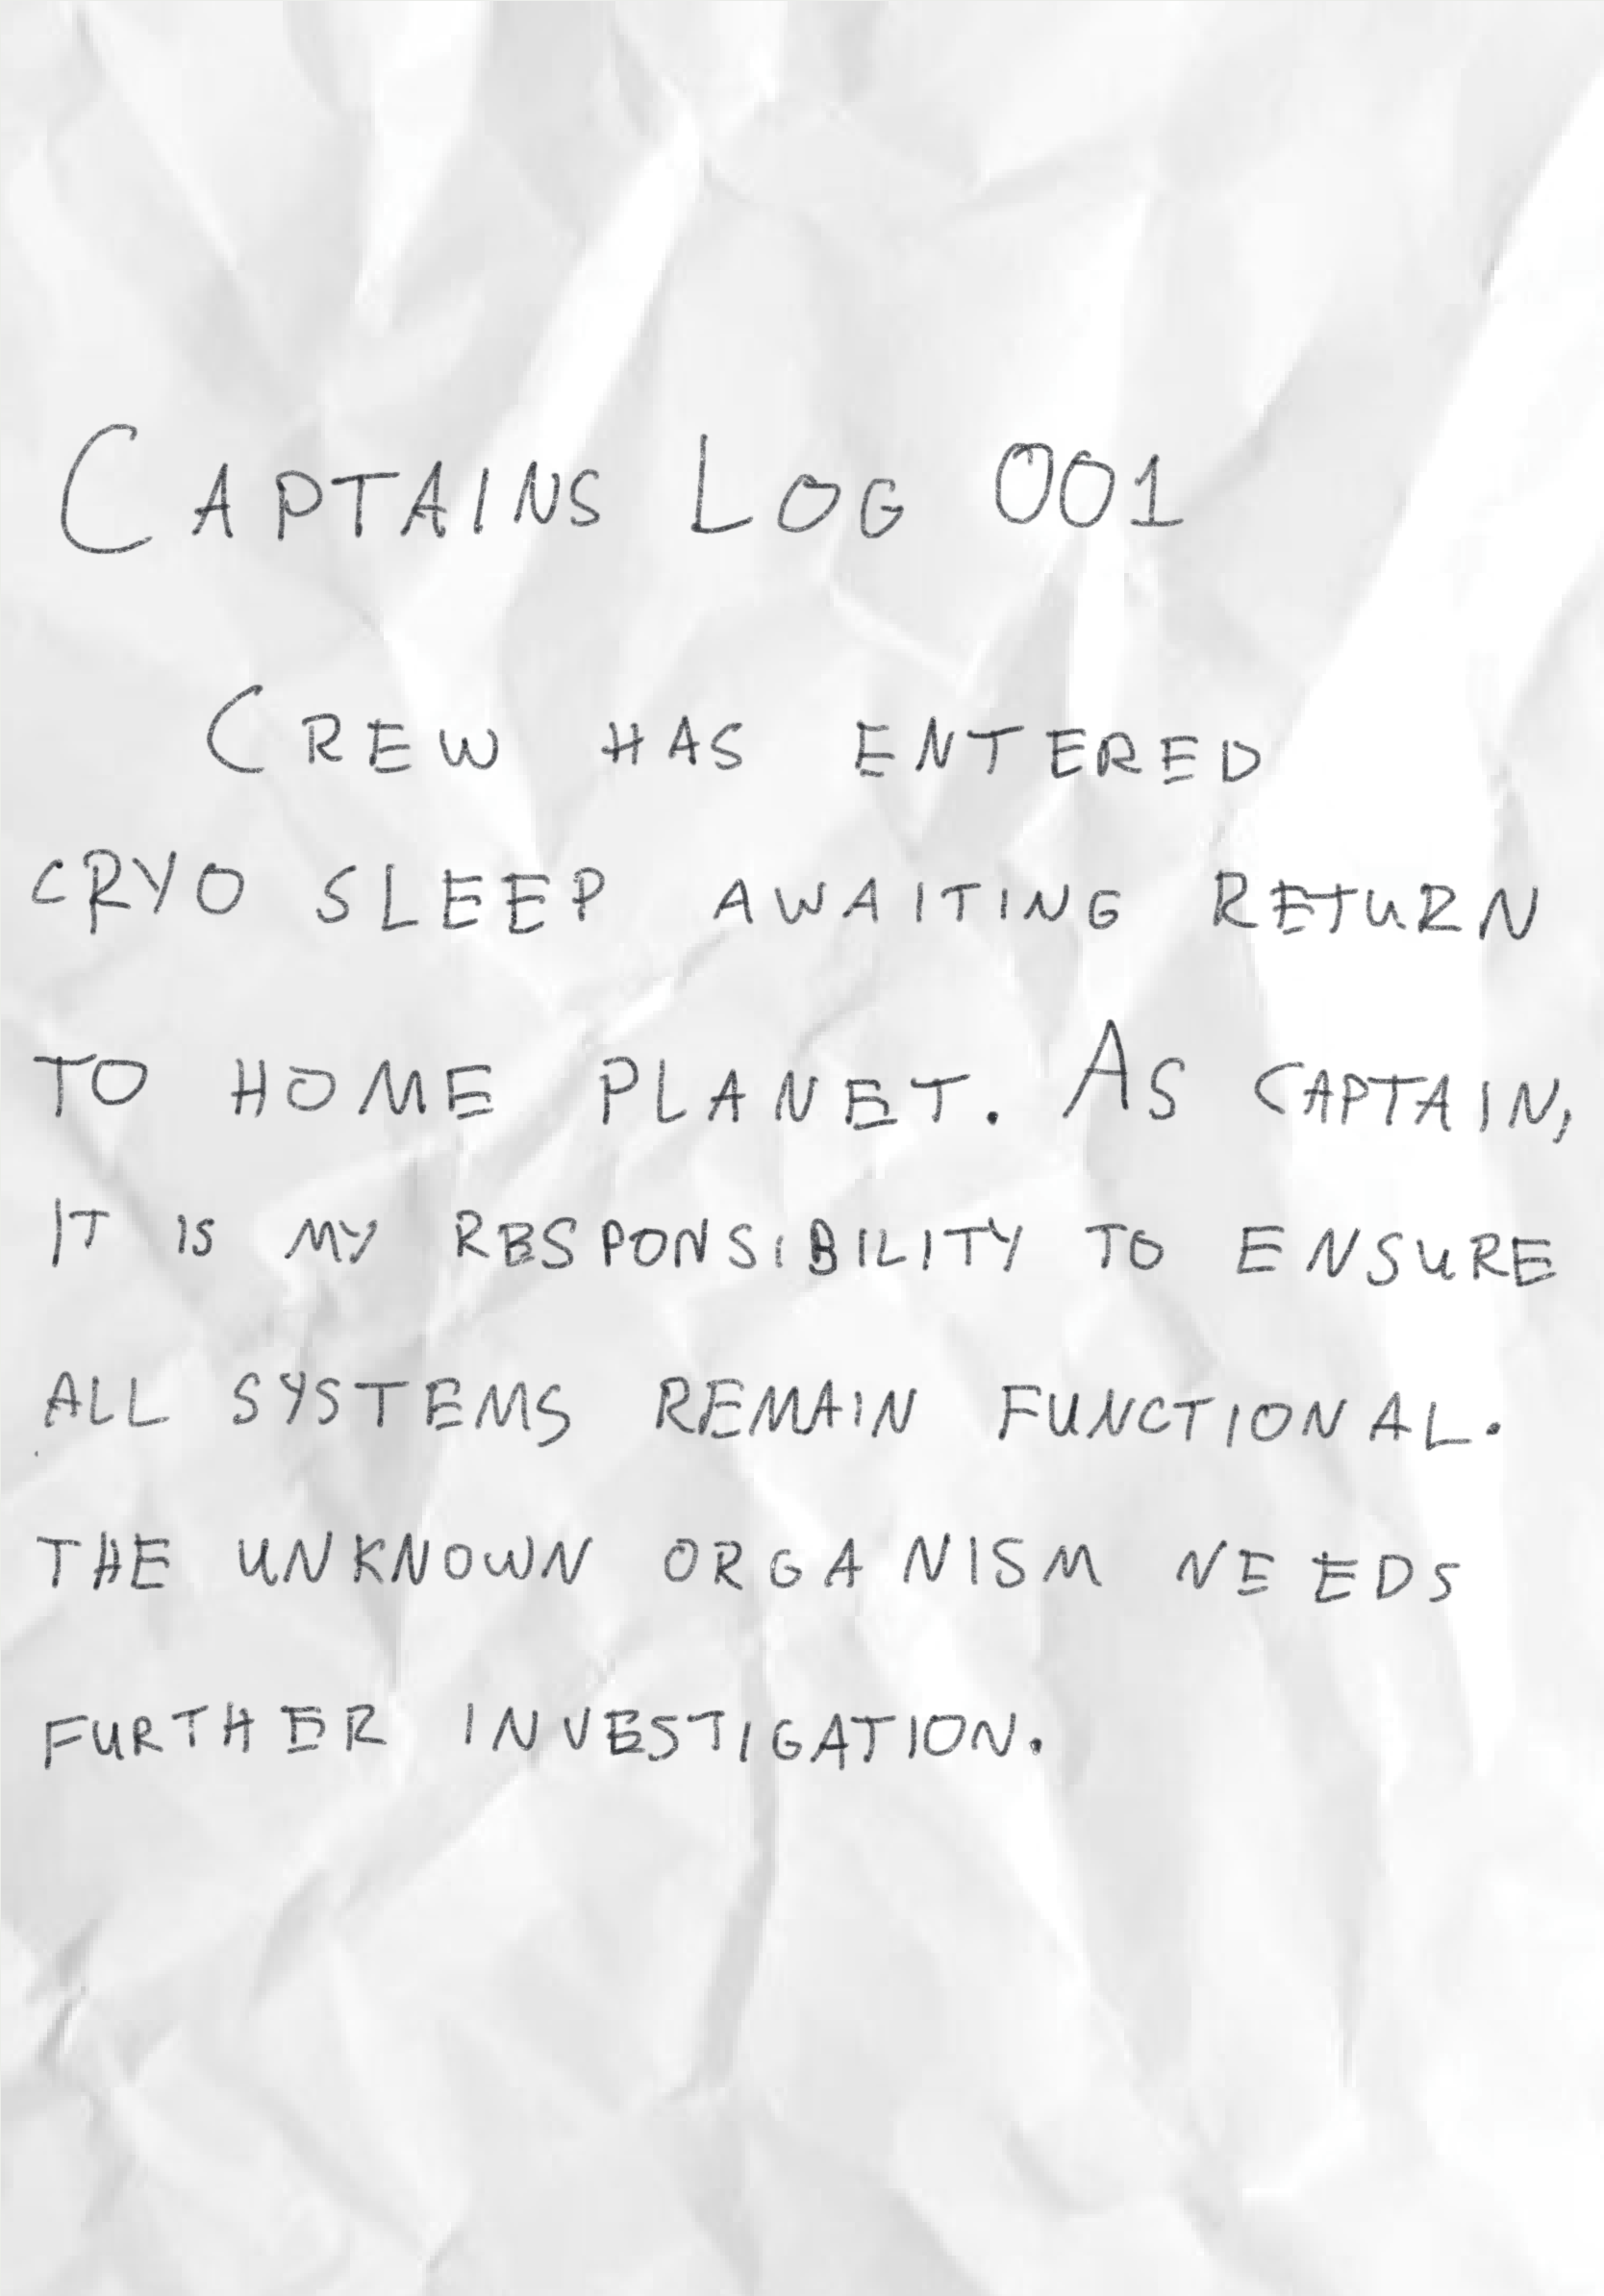 CAPTAINS LOG 001
CREW HAS ENTERED
CRYO SLEEP AWAITING RETURN
TO HOME PLANET. AS CAPTAIN,
IT IS MY RESPONSIBILITY TO ENSURE
ALL SYSTEMS REMAIN FUNCTIONAL.
THE UNKNOWN ORGANISM NEEDS
FURTHER INVESTIGATION.